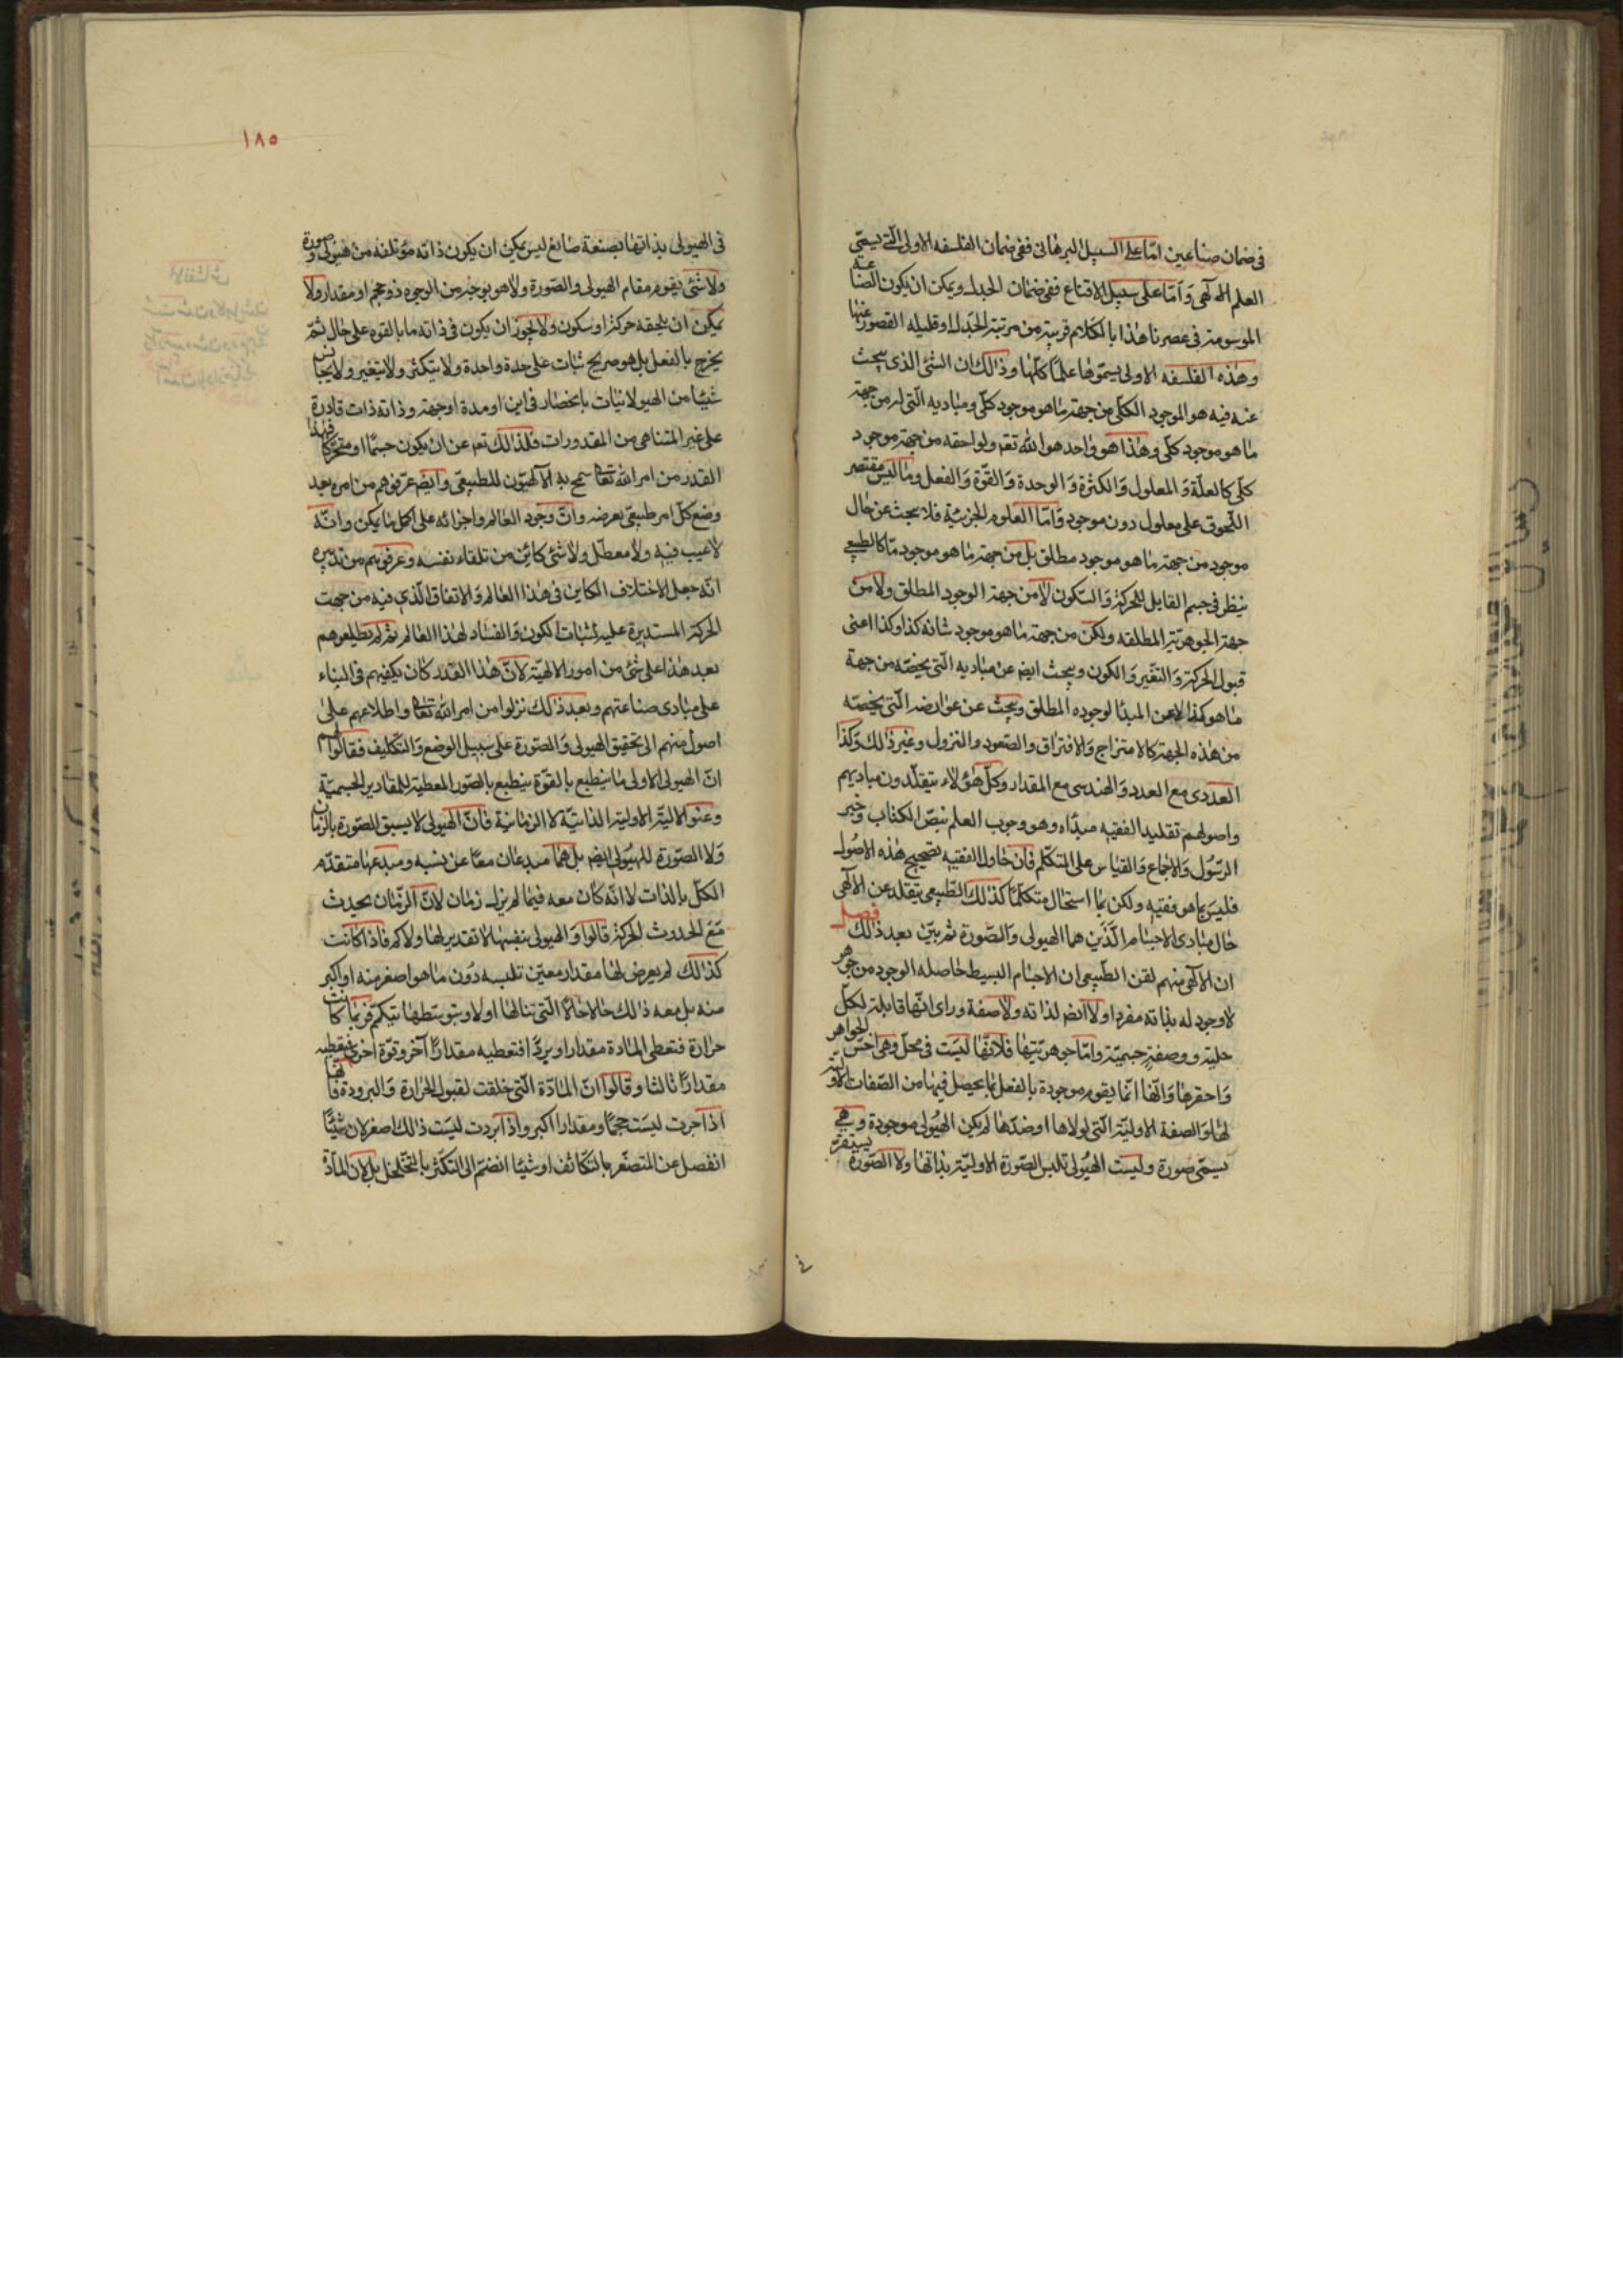 في ضمان صناعين امّا على السبيل البرهاني ففي ضمان الفلسفه الاولى الّتي يسمّى
العلم الالهى وَامّا على سبيل الاقناع ففي ضمان الجدل ويمكن ان يكون الصناعة
الموسومة في عصرنا هذا بالكلام قريبة من مرتبة الجدل او قليله القصور عنها
وهذه الفلسفه الاولى يسمّوها علمًا كليًا وذالك ان الشئ الذى يبحث
عنه فيه هو الموجود الكلّى من جهة ما هو موجود كلّى ومباديه الّتى له من جهة
ما هو موجود كلّى وهذا هو واحد هو الله تعه ولواحقه من جهة موجود
كلّى كالعلّة وَالمعلول وَالكثرة وَالوحدة وَالقوّة وَالفعل وما ليس مقتصر
اللّحوق على معلول دون موجود وَامّا العلوم الجزئية فلا يبحث عن حال
موجود من جهة ما هو موجود مطلق بل من جهة ما هو موجود مّا كالطبيعى
ينظر في جسم القابل للحركة وَالسّكون لا من جهة الوجود المطلق ولا من
جهة الجوهريّة المطلقه ولكن من جهة ما هو موجود شانه كذا وكذا اعنى
قبول الحركة وَالتغّير وَالكون ويبحث ايض عن مباديه الّتى يخصّه من جهة
ما هو كذا لا عن المبدأ لوجوده المطلق ويبحث عن عوارضه الّتى يخصّه
من هذه الجهة كالامتزاج وَالافتراق والصّعود والنزول وغير ذالك وَكذا
العددى مع العدد وَالهندسى مع المقدار وكلّ هؤلاء يتقلّدون مباديهم
واصولهم تقليد الفقيه مبدّاه وهو وجوب العلم بنصّ الكتاب وخبر
الرّسول وَالاجماع وَالقياس على المتكلّم فان حاول الفقيه تصحيح هذه الاصول
فليس بما هو فقيه ولكن بما استحال متكلّمًا كذلك الطّبيعى يتقلّد عن الالهى
حال مبادى الاجسام الّذَين هما الهيولى وَالصّورة ثم بيّن بعد ذالك فصل
ان الالهى منهم لقن الطّبيعى ان الاجسام البسيط حاصله الوجود من جوهر
لا وجود له بذاته مفردا ولا ايض لذاته ولا صفة وراى انّها قابلة لكلّ
حلية ووصفةٍ جسميّة وامّا جوهريّتها فلانّها ليست في محلّ وهى اخسّ الجواهر
وَاحقرها وَانّها انّما يقوم موجودة بالفعل بما يحصل فيها من الصّفات الاوّلية
لها وَالصفة الاوليّة الّتى لولاها او ضدّها لم يكن الهيُولى موجودة وهى
يسمّى صورة وليست الهيُولى تلبس الصّورة الاوليّة بذاتها ولا الصّورة يستقرّ
١٨٥
فى الهيولى بذاتها بصنعة صانع ليس يمكن ان يكون ذاته مؤتلفه من هيولى وصورة
ولا شئ يقوم مقام الهيولى والصّورة ولا هو بوجه من الوجوه ذو حجم او مقدار ولا
يمكن ان يلحقه حركة او سكون ولا يجوز ان يكون في ذاته ما بالقوه على حال ثمّ
يخرج بالفعل بل هو صريح ثبات على حدة واحدة ولا يتكثر ولا يتغير ولا يجانس
شيئا من الهيولانيات بانحصار في اين او مدة او جهة وذاته ذات قادرة
على غير المتناهى من المقدورات فلذالك تعه عن ان يكون جسمًا او متحرّكا فهذا
القدر من امر الله تعا سمح به الآلهيّون للطبيعى وايض عرّفوهم من امره بعد
وضع كلّ امر طبيعى بعرضه وانّ وجود العالم واجزائه على اكمل ما يمكن وانّه
لا عيب فيه ولا معطّل ولا شئ كائن من تلقاء نفسه وعرفوهم من تدبيره
انّه جعل الاختلاف الكاين فى هذا العالم وَالاتفاق الّذى فيه من جهت
الحركة المستديرة عليه لثبات الكون وَالفساد لهذا العالم ثم لم يطلعوهم
بعد هذا على شئ من امور الالهية لانّ هذا القدر كان يكفيهم فى البناء
على مبادى صناعتهم وبعد ذالك نزلوا من امر الله تعا واطلاعهم على
اصول منهم الى تحقيق الهيولى وَالصّورة على سبيل الوضع وَالتّكليف فقالوا لهم
انّ الهيولى الاولى ما ينطبع بالقوّة ينطبع بالصّور المعطية للمقادير الجسميّة
وعنوا الاوليّة الذاتيّة لا الزمانية فانّ الهيولى لا يسبق للصّورة بالزمان
وَلا الصّورة للهيُولى ايض بل هما مبدعان معًا عن ليسيه ومبدعهما متقدّم
الكلّ بالذات لا انّه كان معه فيما لم يزل زمان لانّ الزّمان يحدث
مَعَ الحدوث الحركة قالوا وَالهيولى بنفسها لا تقدير لها ولا كم فاذا كانت
كذالك لم يعرض لها مقدار معيّن تلبسه دُون ما هو اصغر منه او اكبر
منه بل معه ذالك حالا حالا الّتى تنالها اولا وبتوسّطها يتكمّم فربّما كانت
حرارة فتعطى المادة مقدارا وبردًا فتعطيه مقدارًا آخر وقوّة اخرى فيعطيه
مقدارًا ثالثا وقالوا انّ المادّة الّتى خلقت لقبول الحرارة وَالبرودة فانها
اذا حرت لبسَت حجمًا ومقدارا اكبر واذا بردت لبسَت ذالك اصغر لان شيئًا
انفصل عن المتصغّر بالتكاثف او شيئا انضمّ الى التكثر بالتخلخل بل لان المادّة